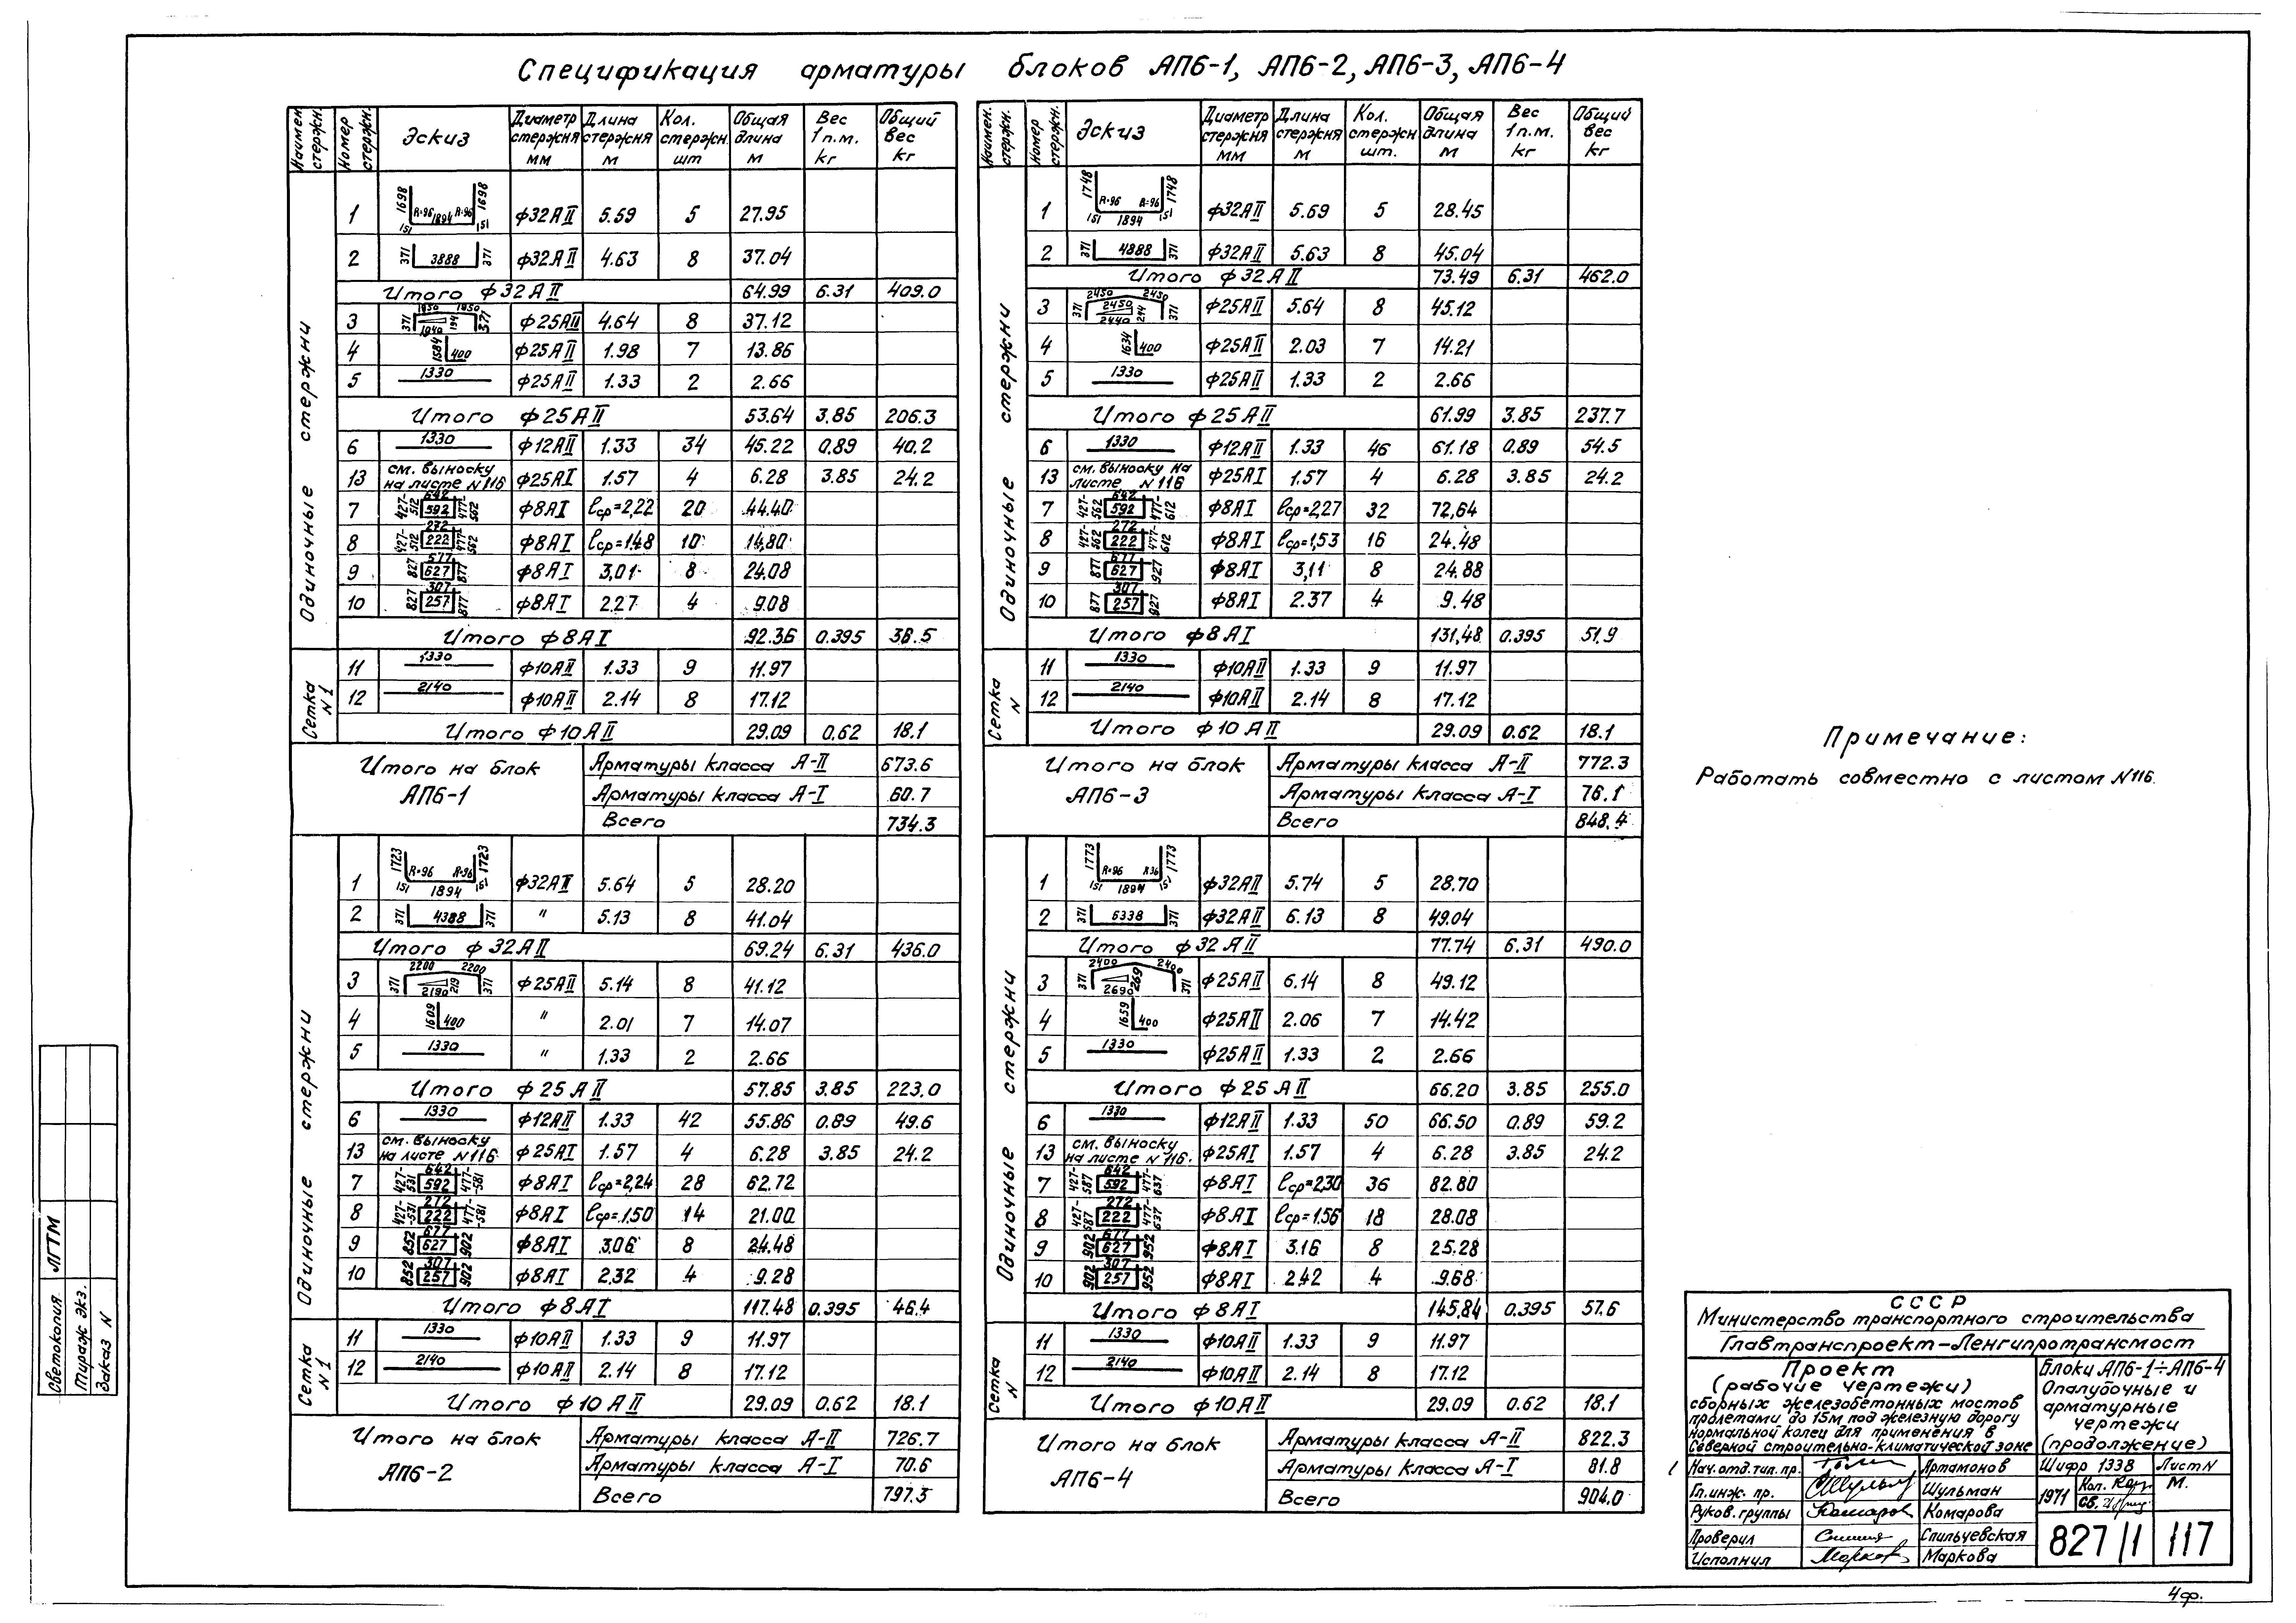 Спецификация арматуры блоков АП6-1, АП6-2, АП6-3, АП6-4
Наимен. стержн. Номер стержн. Эскиз Диаметр стержня мм Длина стержня м Кол. стержн. шт Общая длина м Вес 1 п.м. kг Общий вес kг
Одиночные стержни
1 1698 R=96 1894 R=96 1698 151 151 ф32АII 5.59 5 27.95
2 371 3888 371 ф32АII 4.63 8 37.04
Итого ф32АII 64.99 6.31 409.0
3 371 1950 1950 194 371 ф25АII 4.64 8 37.12
4 1584 400 ф25АII 1.98 7 13.86
5 1330 ф25АII 1.33 2 2.66
Итого ф25АII 53.64 3.85 206.3
6 1330 ф12АII 1.33 34 45.22 0.89 40.2
13 см. выноску на листе N116 ф25АI 1.57 4 6.28 3.85 24.2
7 427-512 642 592 477-562 ф8АI lср=2,22 20 44.40
8 427-512 272 222 477-562 ф8АI lср=1,48 10 14,80
9 827 677 627 877 ф8АI 3,01 8 24.08
10 827 307 257 877 ф8АI 2.27 4 9.08
Итого ф8АI 92.36 0.395 36.5
Сетка N1
11 1330 ф10АII 1.33 9 11.97
12 2140 ф10АII 2.14 8 17.12
Итого ф10АII 29.09 0.62 18.1
Итого на блок АП6-1
Арматуры класса А-II 673.6
Арматуры класса А-I 60.7
Всего 734.3
Одиночные стержни
1 1723 R=96 R=96 1723 151 1894 151 ф32АII 5.64 5 28.20
2 371 4388 371 " 5.13 8 41.04
Итого ф32АII 69.24 6.31 436.0
3 371 2200 2200 2190 219 371 ф25АII 5.14 8 41.12
4 1609 400 " 2.01 7 14.07
5 1330 " 1.33 2 2.66
Итого ф25АII 57.85 3.85 223.0
6 1330 ф12АII 1.33 42 55.86 0.89 49.6
13 см. выноску на листе N116. ф25АI 1.57 4 6.28 3.85 24.2
7 427-531 642 592 477-581 ф8АI lср=2,24 28 62.72
8 427-531 272 222 477-581 ф8АI lср=1,50 14 21.00
9 852 677 627 902 ф8АI 3,06 8 24.48
10 852 307 257 902 ф8АI 2,32 4 9.28
Итого ф8АI 117.48 0.395 46.4
Сетка N1
11 1330 ф10АII 1.33 9 11.97
12 2140 ф10АII 2.14 8 17.12
Итого ф10АII 29.09 0.62 18.1
Итого на блок АП6-2
Арматуры класса А-II 726.7
Арматуры класса А-I 70.6
Всего 797.3
Наимен. стержн. Номер стержн. Эскиз Диаметр стержня мм Длина стержня м Кол. стержн шт. Общая длина м Вес 1 п.м. kг Общий вес kг
Одиночные стержни
1 1748 R=96 R=96 1748 151 1894 151 ф32АII 5.69 5 28.45
2 371 4888 371 ф32АII 5.63 8 45.04
Итого ф32АII 73.49 6.31 462.0
3 371 2450 2450 2450 2440 244 371 ф25АII 5.64 8 45.12
4 1634 400 ф25АII 2.03 7 14.21
5 1330 ф25АII 1.33 2 2.66
Итого ф25АII 61.99 3.85 237.7
6 1330 ф12АII 1.33 46 61.18 0.89 54.5
13 см. выноску на листе N116 ф25АI 1.57 4 6.28 3.85 24.2
7 427-562 642 592 477-612 ф8АI lср=2,27 32 72,64
8 427-562 272 222 477-612 ф8АI lср=1,53 16 24.48
9 877 677 627 927 ф8АI 3,11 8 24.88
10 877 307 257 927 ф8АI 2.37 4 9.48
Итого ф8АI 131,48 0.395 51.9
Сетка N
11 1330 ф10АII 1.33 9 11.97
12 2140 ф10АII 2.14 8 17.12
Итого ф10АII 29.09 0.62 18.1
Итого на блок АП6-3
Арматуры класса А-II 772.3
Арматуры класса А-I 76.1
Всего 848.4
Одиночные стержни
1 1773 R=96 R 96 1773 151 1894 151 ф32АII 5.74 5 28.70
2 371 5338 371 ф32АII 6.13 8 49.04
Итого ф32АII 77.74 6.31 490.0
3 371 2400 2400 2690 269 371 ф25АII 6.14 8 49.12
4 1659 400 ф25АII 2.06 7 14.42
5 1330 ф25АII 1.33 2 2.66
Итого ф25АII 66.20 3.85 255.0
6 1330 ф12АII 1.33 50 66.50 0.89 59.2
13 см. выноску на листе N116. ф25АI 1.57 4 6.28 3.85 24.2
7 427-587 642 592 477-637 ф8АI lср=2,30 36 82.80
8 427-587 272 222 477-637 ф8АI lср=1.56 18 28.08
9 902 677 627 952 ф8АI 3.16 8 25.28
10 902 307 257 952 ф8АI 2.42 4 9.68
Итого ф8АI 145,84 0.395 57.6
Сетка N
11 1330 ф10АII 1.33 9 11.97
12 2140 ф10АII 2.14 8 17.12
Итого ф10АII 29.09 0.62 18.1
Итого на блок АП6-4
Арматуры класса А-II 822.3
Арматуры класса А-I 81.8
Всего 904.0
Примечание:
Работать совместно с листом N116.
Светокопия ЛГТМ
Тираж экз.
Заказ N
СССР
Министерство транспортного строительства
Главтранспроект-Ленгипротрансмост
Проект
(рабочие чертежи)
сборных железобетонных мостов
пролетами до 15м под железную дорогу
нормальной колеи для применения в
Северной строительно-климатической зоне
Блоки АП6-1÷АП6-4
Опалубочные и
арматурные
чертежи
(продолжение)
Нач.отд.тип.пр. Артамонов
Гл.инж. пр. Шульман
Руков.группы Комарова
Проверил Спильчевская
Исполнил Маркова
Шифр 1338 Лист N
1971 Коп. Св. М.
827/1 117
4ф.